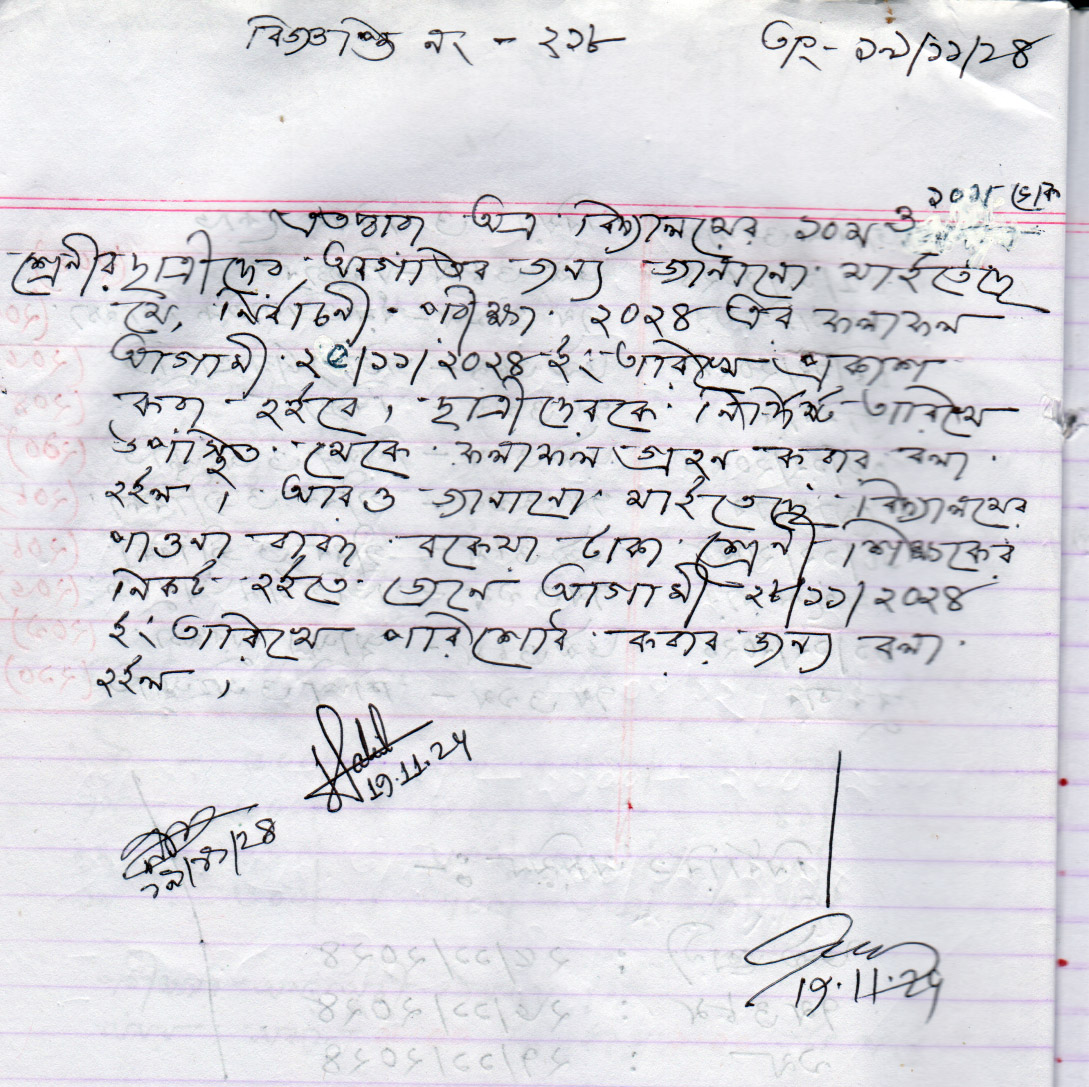 বিজ্ঞপ্তি নং - ২১৮ তাং- ১৯/১১/২৪
এতদ্বারা অত্র বিদ্যালয়ের ১০ম ও ১০ম ভোক
শ্রেনীর ছাত্রীদের অবগতির জন্য জানানো যাইতেছে
যে, নির্বাচনী পরীক্ষা ২০২৪ এর ফলাফল
আগামী ২৫/১১/২০২৪ ইং তারিখে প্রকাশ
করা হইবে। ছাত্রীদেরকে নির্দিষ্ট তারিখে
উপস্থিত থেকে ফলাফল গ্রহন করার বলা
হইল। আরও জানানো যাইতেছে বিদ্যালয়ের
পাওনা বাবদ বকেয়া টাকা শ্রেনী শিক্ষকের
নিকট হইতে জেনে আগামী ২৮/১১/২০২৪
ইং তারিখে পরিশোধ করার জন্য বলা
হইল।
19.11.24
19.11.24